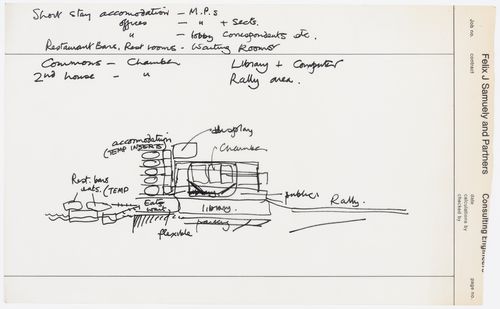 Short stay accomodation - M.P.s
offices - " + Sects.
" - lobby correspondents etc.
Restaurant Bars, Rest rooms - Waiting Rooms
Commons - Chamber Library + Computer
2nd house - " Rally area.
accomodation
(TEMP INSERTS
display
Chamber
Rest. bars
eats. (TEMP
Eats
library.
public
Rally.
parking
flexible
Felix J Samuely and Partners Consulting Engineers
Job no.
contract
date
calculations by
checked by
page no.